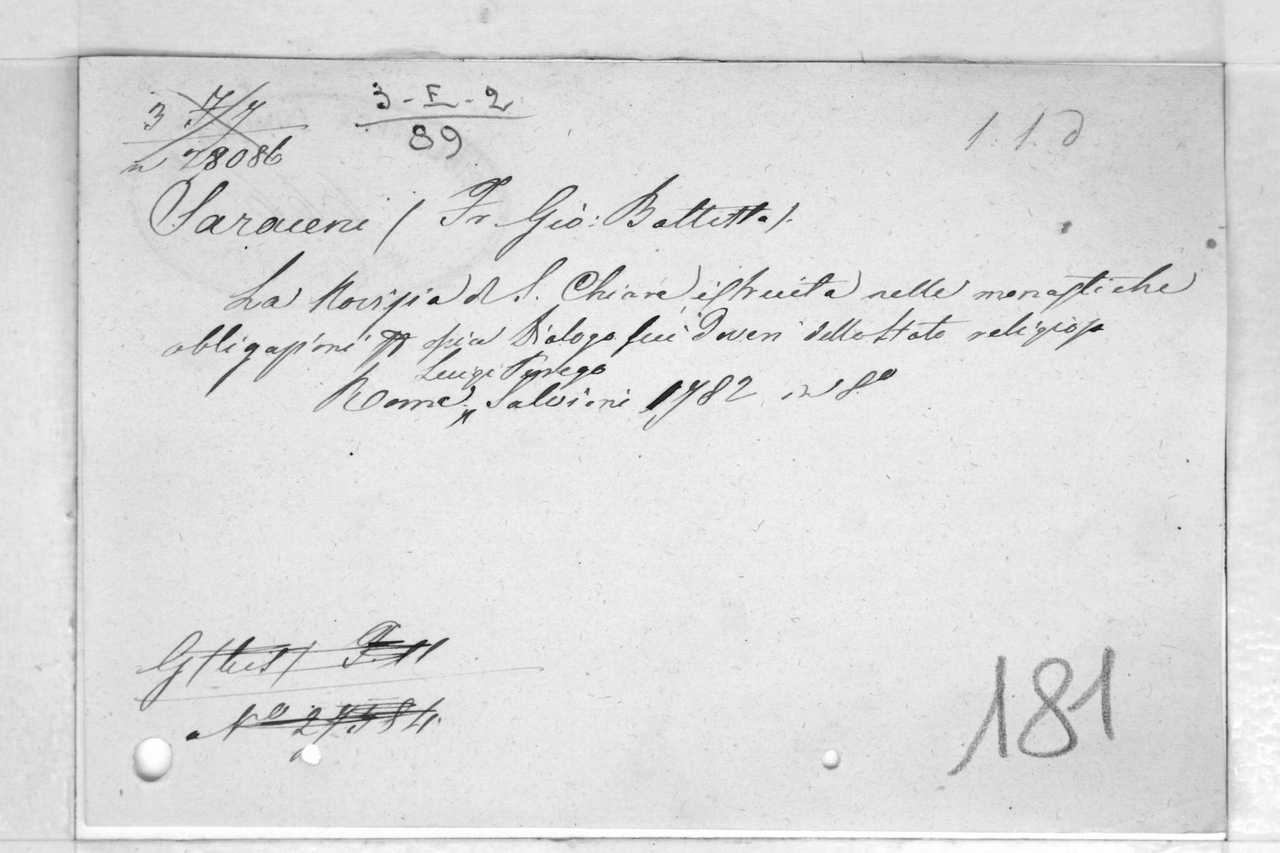 3 7/7
n 28086
3-E-2
89
1.1.d
Saraceni (Fr. Giò: Battista).
La Novizia di S. Chiara istruita nelle monastiche
obbligazioni ossia Dialogo sui Doveri dello Stato religioso
Luigi Perego
Roma, Salvioni 1782 in 8º
G (bis) F. 11
Nº 27584.
181